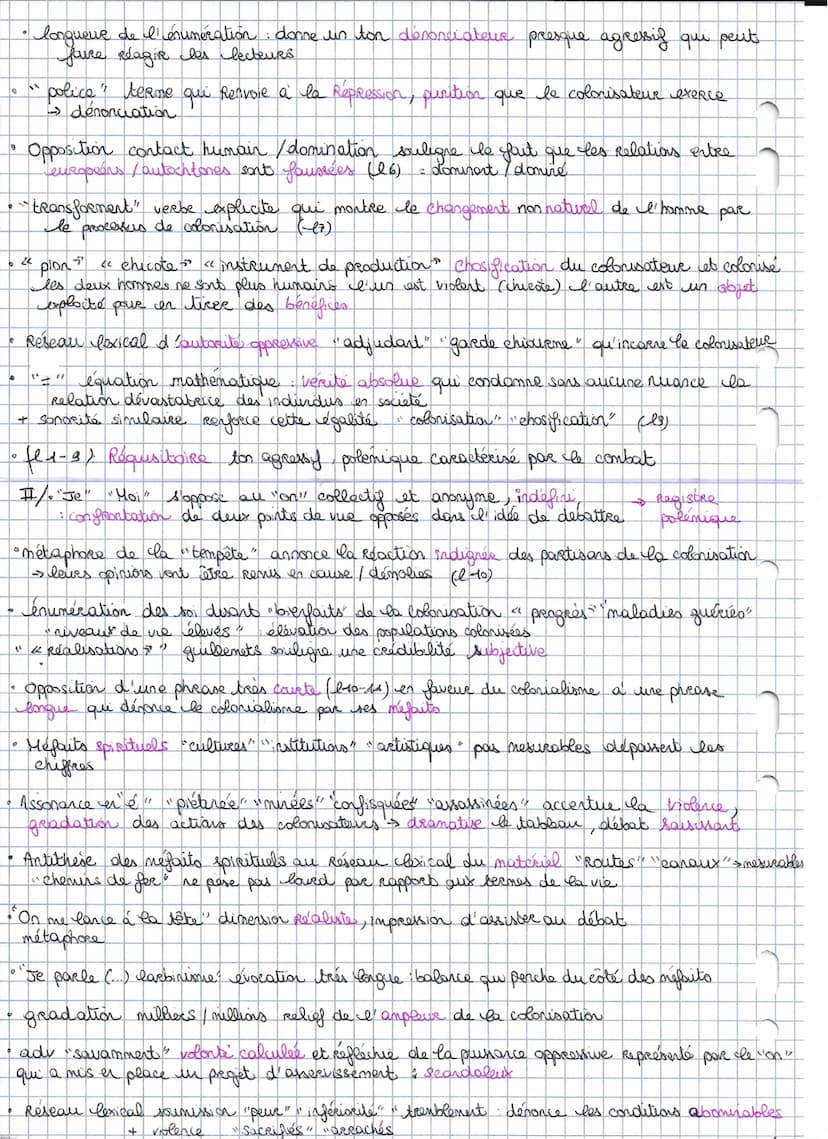 • longueur de l'énumération : donne un ton dénonciateur presque agressif qui peut
faire réagir les lecteurs
• "police" terme qui renvoie à la Répression, punition que le colonisateur exerce
→ dénonciation
• Opposition contact humain / domination souligne le fait que les relations entre
européens / autochtones sont faussées (l6) = dominant / dominé
• "transforment" verbe explicite qui montre le changement non naturel de l'homme par
le processus de colonisation (l7)
• « pion » « chicote » « instrument de production » chosification du colonisateur et colonisé
les deux hommes ne sont plus humains l'un est violent (chicote) l'autre est un objet
exploité pour en tirer des bénéfices
• Réseau lexical d'autorité oppressive "adjudant" "garde chiourme" qu'incarne le colonisateur
• "=" équation mathématique : vérité absolue qui condamne sans aucune nuance la
relation dévastatrice des individus en société
+ sonorité similaire renforce cette égalité "colonisation" "chosification" (l9)
• (l1-9) Réquisitoire ton agressif, polémique caractérisé par le combat
II/• "Je" "Moi" s'oppose au "on" collectif et anonyme, indéfini → Registre
: confrontation de deux points de vue opposés dans l'idée de débattre polémique
• métaphore de la "tempête" annonce la réaction indignée des partisans de la colonisation
→ leurs opinions vont être remis en cause / démolies (l-10)
• énumération des soi disant "bienfaits" de la colonisation « progrès » "maladies guéries"
"niveaux de vie élevés" : élévation des populations colonisées
" « réalisations » " guillemets souligne une crédibilité subjective
• Opposition d'une phrase très courte (l10-11) en faveur du colonialisme à une phrase
longue qui dénonce le colonialisme par ses méfaits
• Méfaits spirituels "cultures" "institutions" "artistiques" pas mesurables dépassent les
chiffres
• Assonance en "é" "piétinée" "minées" "confisquées" "assassinées" accentue la violence,
gradation des actions des colonisateurs → dramatise le tableau, débat saisissant
• Antithèse des méfaits spirituels au réseau lexical du matériel "Routes" "canaux" → mesurables
"chemins de fer" ne pèse pas lourd par rapport aux termes de la vie
• "On me lance à la tête" dimension réaliste, impression d'assister au débat
métaphore
• "Je parle (...) larbinisme" évocation très longue : balance qui penche du côté des méfaits
• gradation milliers / millions relief de l'ampleur de la colonisation
• adv "savamment" volonté calculée et réfléchie de la puissance oppressive représenté par le "on"
qui a mis en place un projet d'asservissement : scandaleux
• Réseau lexical soumission "peur" "infériorité" "tremblement : dénonce les conditions abominables
+ violence "sacrifiés" "arrachés